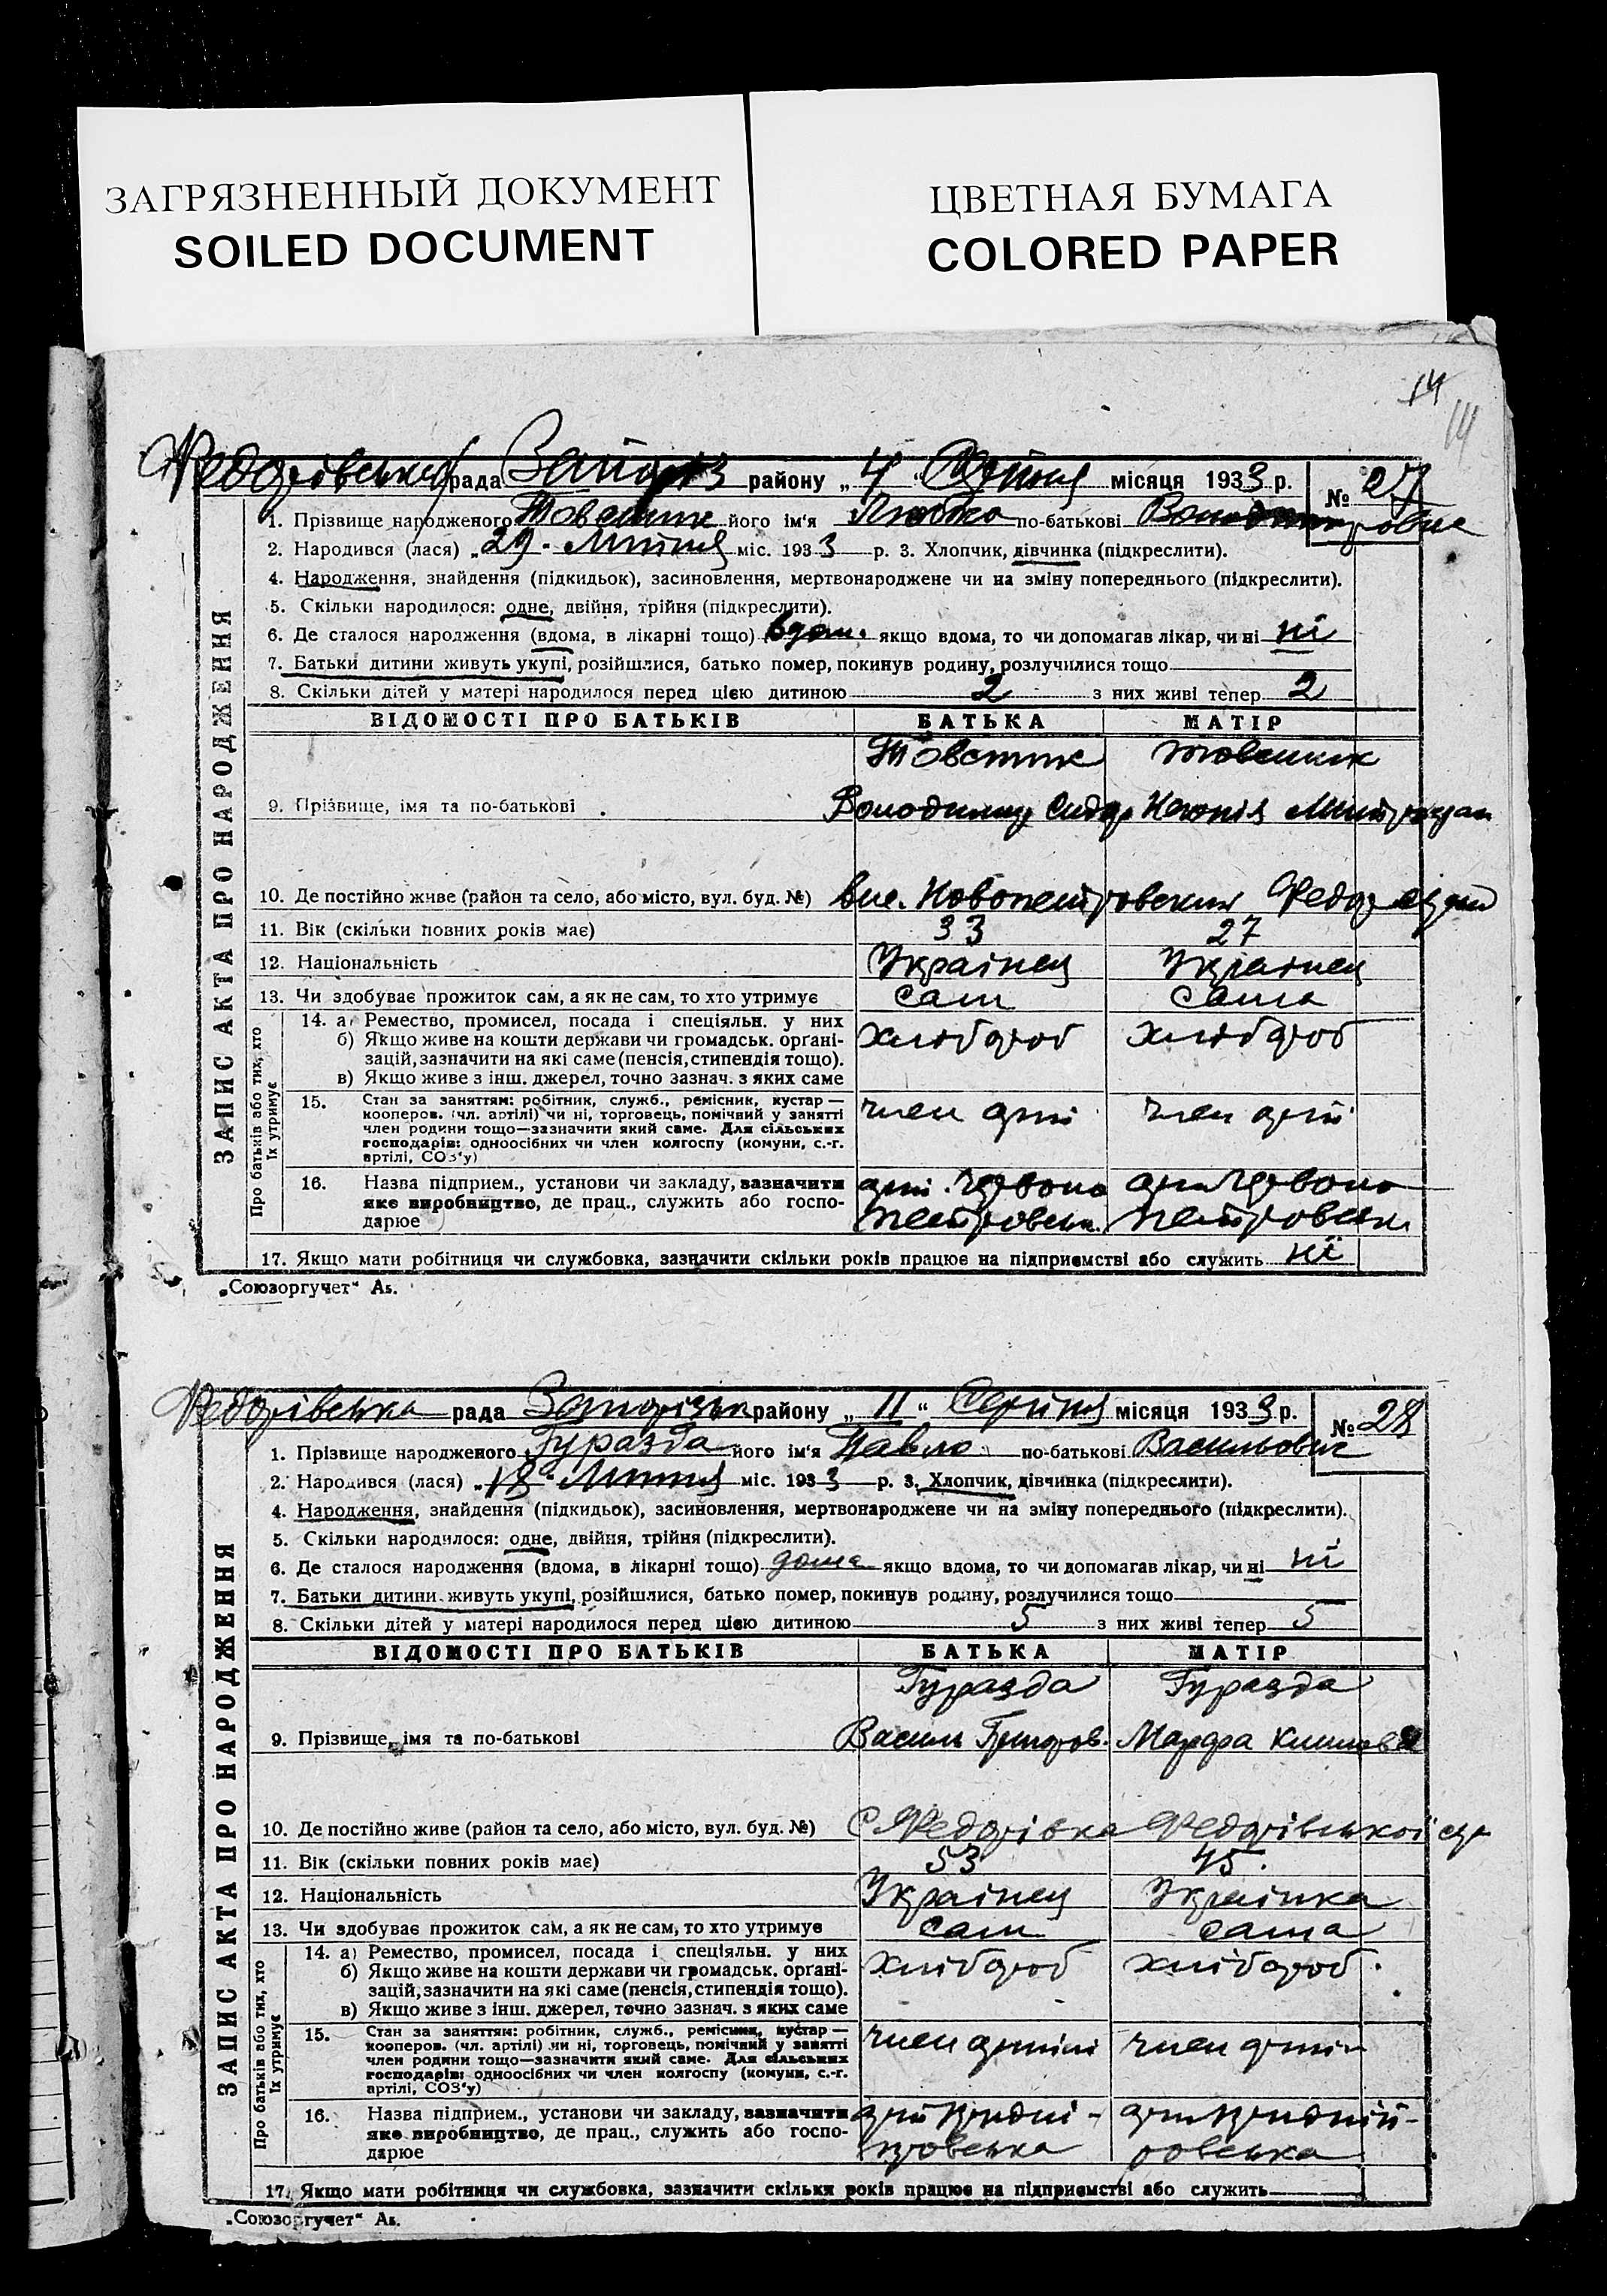 ЗАГРЯЗНЕННЫЙ ДОКУМЕНТ
SOILED DOCUMENT
ЦВЕТНАЯ БУМАГА
COLORED PAPER
14
14
Федорівська рада району „4“ Серпня місяця 1933 р. № 27
1. Прізвище народженого Товстик його ім'я Любка по-батькові Володимировна
2. Народився (лася) „29“ Липня міс. 1933 р. 3. Хлопчик, дівчинка (підкреслити).
4. Народження, знайдення (підкидьок), засиновлення, мертвонароджене чи на зміну попереднього (підкреслити).
5. Скільки народилося: одне, двійня, трійня (підкреслити).
6. Де сталося народження (вдома, в лікарні тощо) вдом. якщо вдома, то чи допомагав лікар, чи ні ні
7. Батьки дитини живуть укупі, розійшлися, батько помер, покинув родину, розлучилися тощо
8. Скільки дітей у матері народилося перед цією дитиною 2 з них живі тепер 2
ЗАПИС АКТА ПРО НАРОДЖЕННЯ
ВІДОМОСТІ ПРО БАТЬКІВ БАТЬКА МАТІР
Товстик Товстик
9. Прізвище, імя та по-батькові Володимир Сидор
10. Де постійно живе (район та село, або місто, вул. буд. №) вис. Новопетровский
11. Вік (скільки повних років має) 33 27
12. Національність Українец Українец
13. Чи здобуває прожиток сам, а як не сам, то хто утримує сам сама
Про батьків або тих, хто їх утримує
14. а) Ремество, промисел, посада і спеціяльн. у них хлібороб хлібороб
б) Якщо живе на кошти держави чи громадськ. орґані-
зацій, зазначити на які саме (пенсія, стипендія тощо).
в) Якщо живе з інш. джерел, точно зазнач. з яких саме
15. Стан за заняттям: робітник, служб., ремісник, кустар— член арті член арті
кооперов. (чл. артілі) чи ні, торговець, помічний у занятті
член родини тощо—зазначити який саме. Для сільських
господарів: одноосібних чи член колгоспу (комуни, с.-г.
артілі, СОЗ'у)
16. Назва підприєм., установи чи закладу, зазначити арт. Червоно арт Червоно
яке виробництво, де прац., служить або госпо- петровськ. петровськ
дарює
17. Якщо мати робітниця чи службовка, зазначити скільки років працює на підприємстві або служить ні
„Союзоргучет“ Аз.
Федорівська рада Запорізьк району „11“ Серпня місяця 1933 р. № 28
1. Прізвище народженого Гуразда його ім'я Павло по-батькові Васильович
2. Народився (лася) „18“ Липня міс. 1933 р. 3. Хлопчик, дівчинка (підкреслити).
4. Народження, знайдення (підкидьок), засиновлення, мертвонароджене чи на зміну попереднього (підкреслити).
5. Скільки народилося: одне, двійня, трійня (підкреслити).
6. Де сталося народження (вдома, в лікарні тощо) дома якщо вдома, то чи допомагав лікар, чи ні ні
7. Батьки дитини живуть укупі, розійшлися, батько помер, покинув родину, розлучилися тощо
8. Скільки дітей у матері народилося перед цією дитиною 5 з них живі тепер 5
ЗАПИС АКТА ПРО НАРОДЖЕННЯ
ВІДОМОСТІ ПРО БАТЬКІВ БАТЬКА МАТІР
Гуразда Гуразда
9. Прізвище, імя та по-батькові Васили Григоров. Марфа
10. Де постійно живе (район та село, або місто, вул. буд. №) С Федорівка Федорівської с/р
11. Вік (скільки повних років має) 53 45.
12. Національність Українец Українка
13. Чи здобуває прожиток сам, а як не сам, то хто утримує сам сама
Про батьків або тих, хто їх утримує
14. а) Ремество, промисел, посада і спеціяльн. у них хлібороб хлібороб.
б) Якщо живе на кошти держави чи громадськ. орґані-
зацій, зазначити на які саме (пенсія, стипендія тощо).
в) Якщо живе з інш. джерел, точно зазнач. з яких саме
15. Стан за заняттям: робітник, служб., ремісник, кустар— член артілі член артіл
кооперов. (чл. артілі) чи ні, торговець, помічний у занятті
член родини тощо—зазначити який саме. Для сільських
господарів: одноосібних чи член колгоспу (комуни, с.-г.
артілі, СОЗ'у)
16. Назва підприєм., установи чи закладу, зазначити
яке виробництво, де прац., служить або госпо- ровська
дарює
17. Якщо мати робітниця чи службовка, зазначити скільки років працює на підприємстві або служить
„Союзоргучет“ Аз.